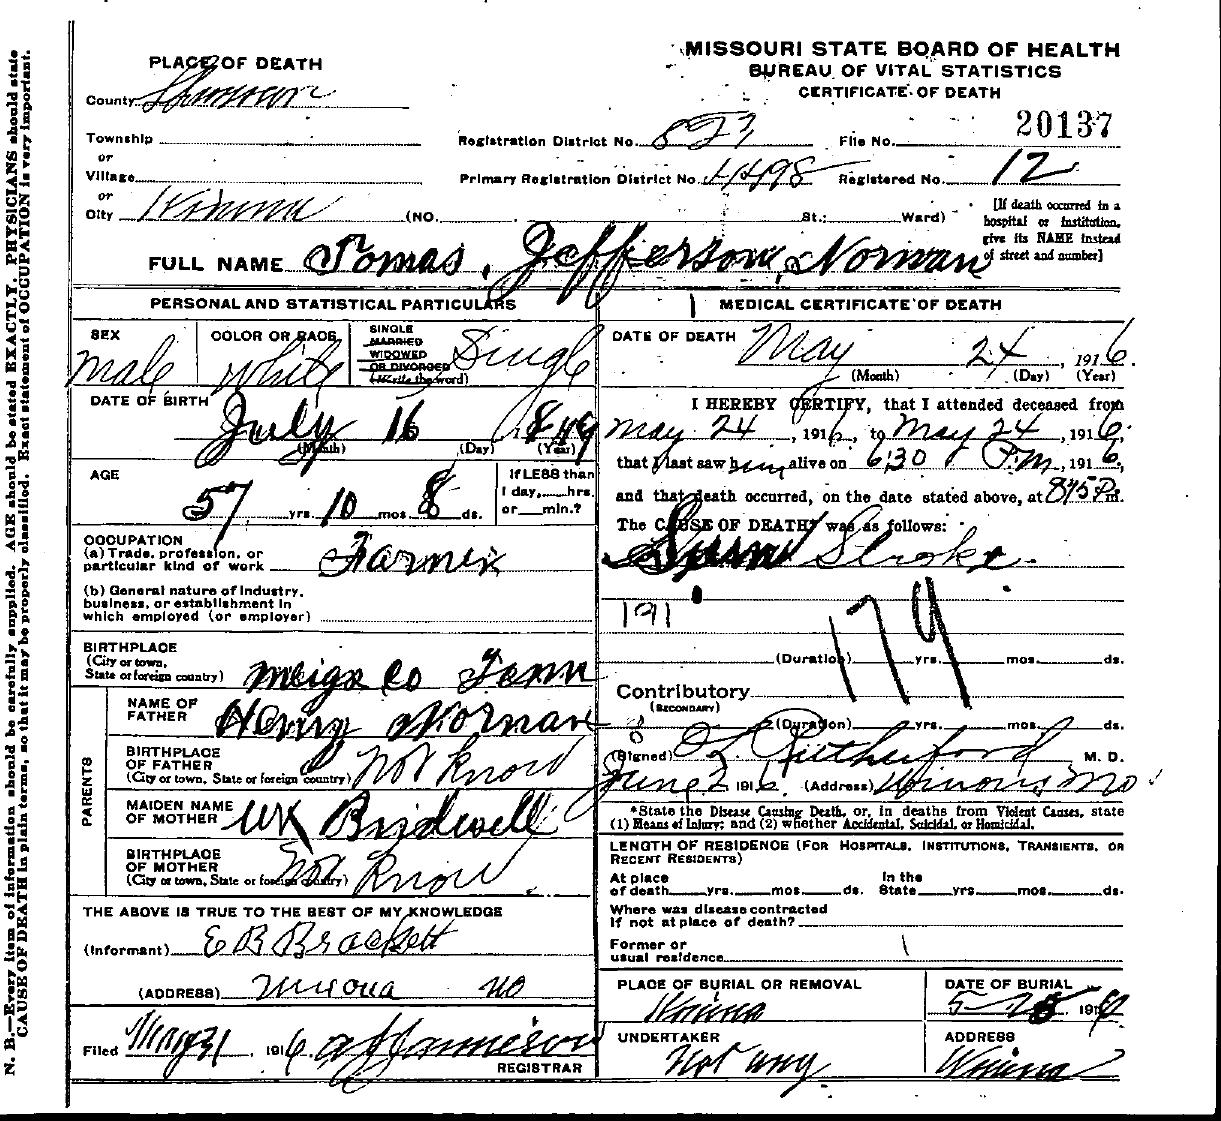 N. B.—Every item of information should be carefully supplied. AGE should be stated EXACTLY. PHYSICIANS should state
CAUSE OF DEATH in plain terms, so that it may be properly classified. Exact statement of OCCUPATION is very important.
MISSOURI STATE BOARD OF HEALTH
BUREAU OF VITAL STATISTICS
CERTIFICATE OF DEATH
PLACE OF DEATH
County Shannon
Township
or
Village
or
City Winona (NO. St.; Ward)
Registration District No. 823 File No. 20137
Primary Registration District No. 4498 Registered No. 12
[If death occurred in a
hospital or institution,
give its NAME instead
of street and number]
FULL NAME Tomas Jefferson Norman
PERSONAL AND STATISTICAL PARTICULARS
SEX
male
COLOR OR RACE
White
SINGLE
MARRIED
WIDOWED
OR DIVORCED
(Write the word)
Single
DATE OF BIRTH
July 16 1849
(Month) (Day) (Year)
AGE
57 yrs. 10 mos. 8 ds.
If LESS than
1 day, hrs.
or min.?
OCCUPATION
(a) Trade, profession, or
particular kind of work Farmer
(b) General nature of industry,
business, or establishment in
which employed (or employer)
BIRTHPLACE
(City or town,
State or foreign country) Meigs Co Tenn
PARENTS
NAME OF
FATHER Henry Norman
BIRTHPLACE
OF FATHER
(City or town, State or foreign country) Not Know
MAIDEN NAME
OF MOTHER UK Bridwell
BIRTHPLACE
OF MOTHER
(City or town, State or foreign country) Not Know
THE ABOVE IS TRUE TO THE BEST OF MY KNOWLEDGE
(Informant) E B Brackett
(ADDRESS) Winona Mo
Filed May 31, 1916
REGISTRAR
MEDICAL CERTIFICATE OF DEATH
DATE OF DEATH May 24, 1916
(Month) (Day) (Year)
I HEREBY CERTIFY, that I attended deceased from
May 24, 1916, to May 24, 1916,
that I last saw him alive on 6:30 P.m., 1916,
and that death occurred, on the date stated above, at 845 Pm.
The CAUSE OF DEATH* was as follows:
Sun Stroke
191
179
(Duration) yrs. mos. ds.
Contributory
(SECONDARY)
(Duration) yrs. mos. ds.
(Signed) Rutherford M. D.
June 2 1916 (Address) Winona Mo
*State the Disease Causing Death, or, in deaths from Violent Causes, state
(1) Means of Injury; and (2) whether Accidental, Suicidal, or Homicidal.
LENGTH OF RESIDENCE (FOR HOSPITALS, INSTITUTIONS, TRANSIENTS, OR
RECENT RESIDENTS)
At place In the
of death yrs. mos. ds. State yrs. mos. ds.
Where was disease contracted
if not at place of death?
Former or
usual residence
PLACE OF BURIAL OR REMOVAL
Winona
DATE OF BURIAL
5-25 1916
UNDERTAKER
Not any
ADDRESS
Winona